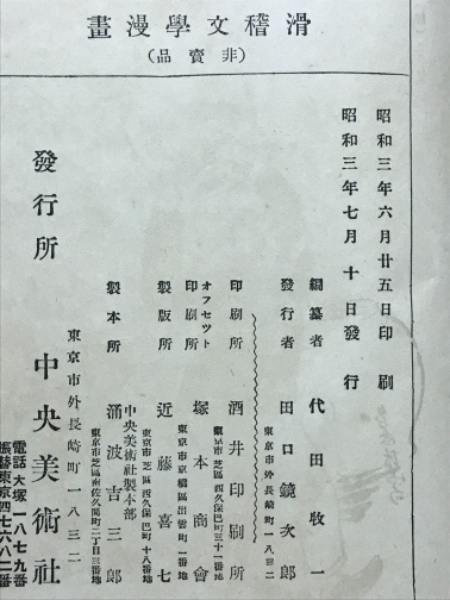 滑稽文學漫畫
（非賣品）
昭和三年六月廿五日印刷
昭和三年七月十日發行
編纂者 代田收一
發行者 田口鏡次郎
東京市外長崎町一八三二
印刷所 酒井印刷所
東京市芝區西久保巴町三十一番地
オフセツト印刷所 塚本商會
東京市京橋區出雲町一番地
製版所 近藤喜七
東京市芝區西久保巴町十八番地
中央美術社製本部
製本所 涌波吉三郎
東京市芝區南佐久間町二丁目三番地
東京市外長崎町一八三二
發行所 中央美術社
電話大塚一八七九番
振替東京四七六八二番